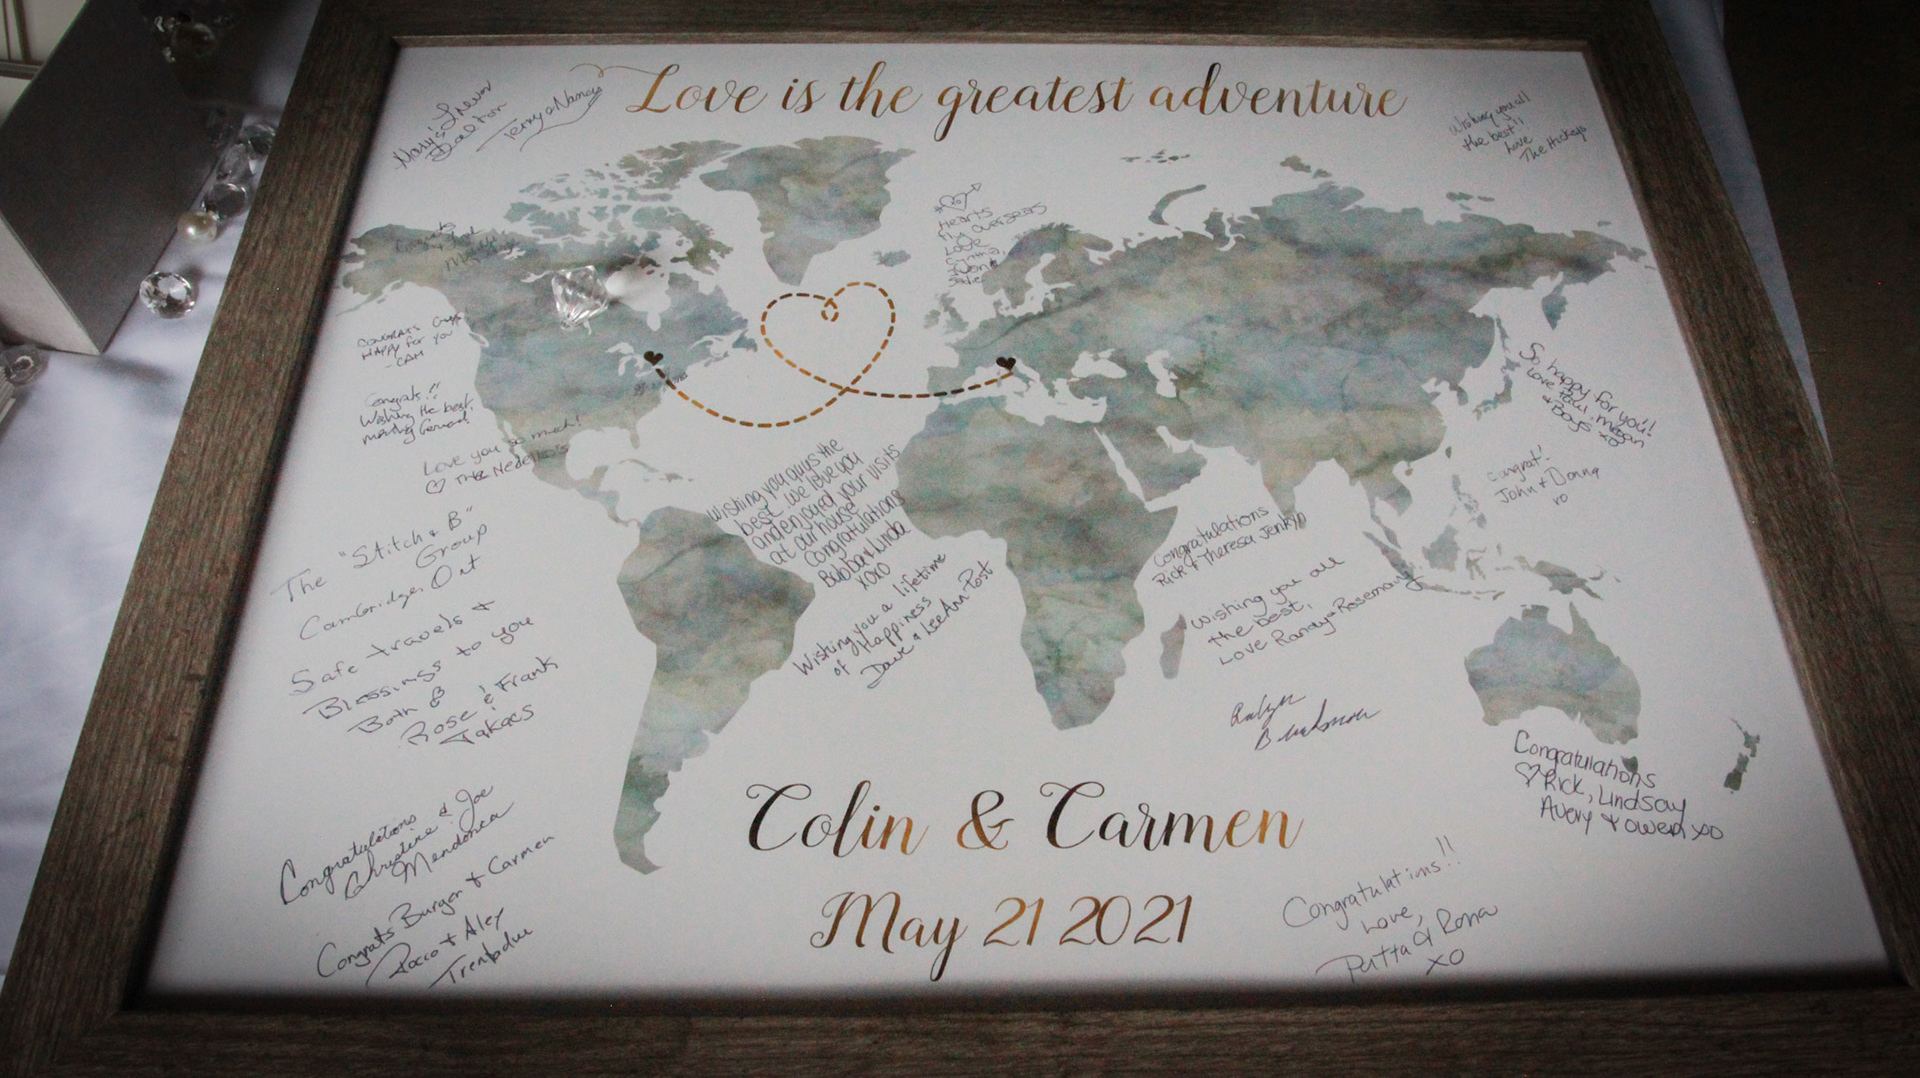 Love is the greatest adventure
Terry & Nancy
Wishing you all
the best!
Love
The Hickeys
Hearts
Fly overseas
Love
Cynthia,
Congrats
CONGRATS Guys
Happy for you
-CAM
Congrats!!
Wishing the best
Love you so much!
♡ The Nedelko's
So happy for you!!
Love Paul, Megan
& Boys xo
Congrat!
John & Donna
xo
Wishing you guys the
best, we love you
and enjoyed your visits
at our house!
Congratulations
Bubba & Linda
xoxo
Congratulations
Rick & Theresa Jenkyn
The "Stitch & B"
Group
Cambridge, Ont
Safe travels &
Blessings to you
Both
Rose & Frank
Takacs
Wishing you a lifetime
of Happiness
Dave & LeeAnn Post
Wishing you all
the best,
Love Randy & Rosemary
Congratulations
♡ Rick, Lindsay
Avery & Owen xo
Congratulations
Christine & Joe
Mendonca
Congrats Burger & Carmen
Rocco & Aley
Colin & Carmen
May 21 2021
Congratulations!!
Love,
& Rona
XO